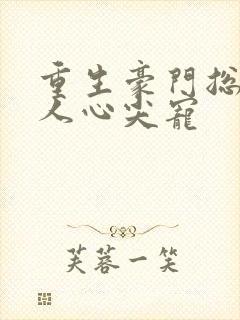 重生豪門總
人心尖寵
芙蓉一笑